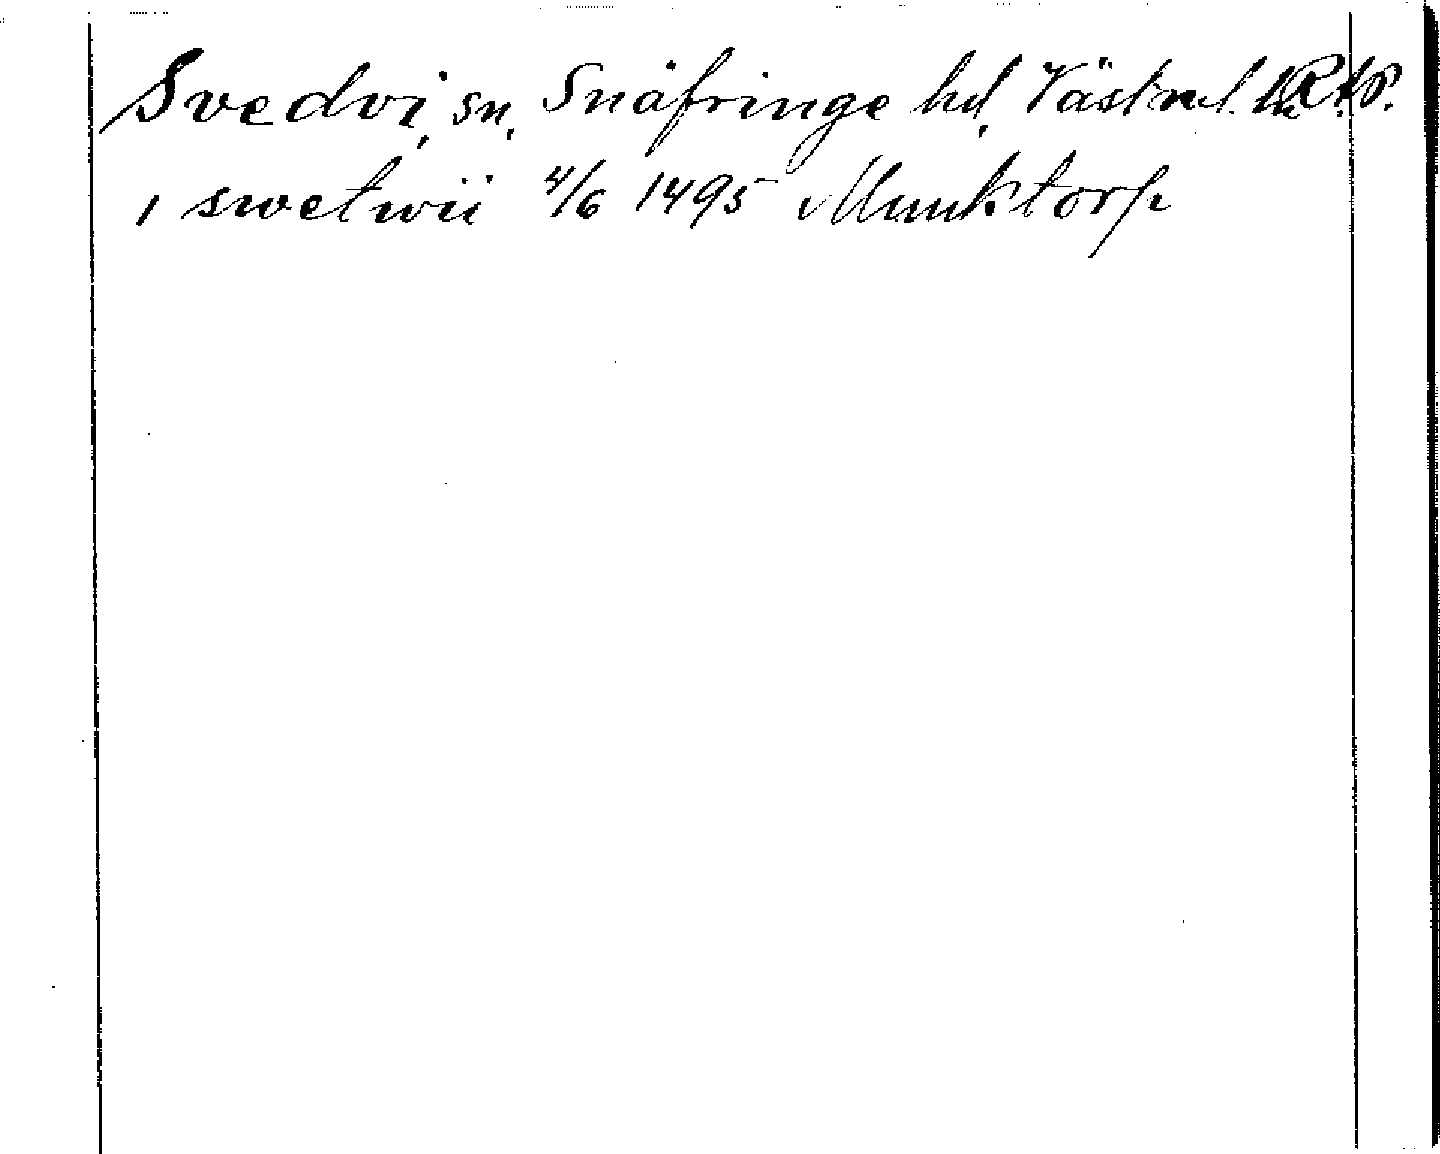 Svedvi, sn, Snäfringe hd, Västml. RAP.
i swetwii 4/6 1495 Munktorp